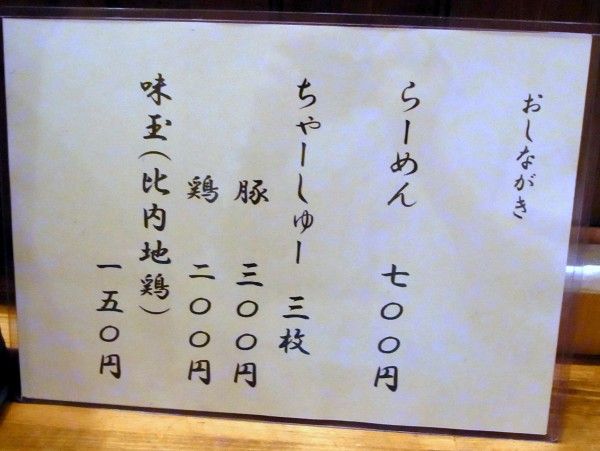 おしながき
らーめん 七〇〇円
ちゃーしゅー 三枚
豚 三〇〇円
鶏 二〇〇円
味玉(比内地鶏)
一五〇円